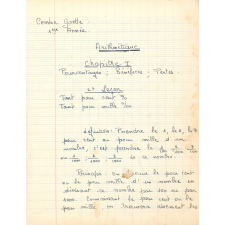 Combe Yvette
1ère Année.
Arithmétique
Chapitre I
Pourcentages ; Bénéfices ; Pertes.
1° Leçon
Tant pour cent %
Tant pour mille ‰
Définition : Prendre le 1, le 2, le 3
pour cent ou pour mille d'un
nombre, c'est prendre le
de ce nombre.
Principe : on prend le pour cent
ou le pour mille d'un nombre en
divisant ce nombre par 100 ou par
1000. Connaissant le pour cent ou le
pour mille on trouvera aisément les